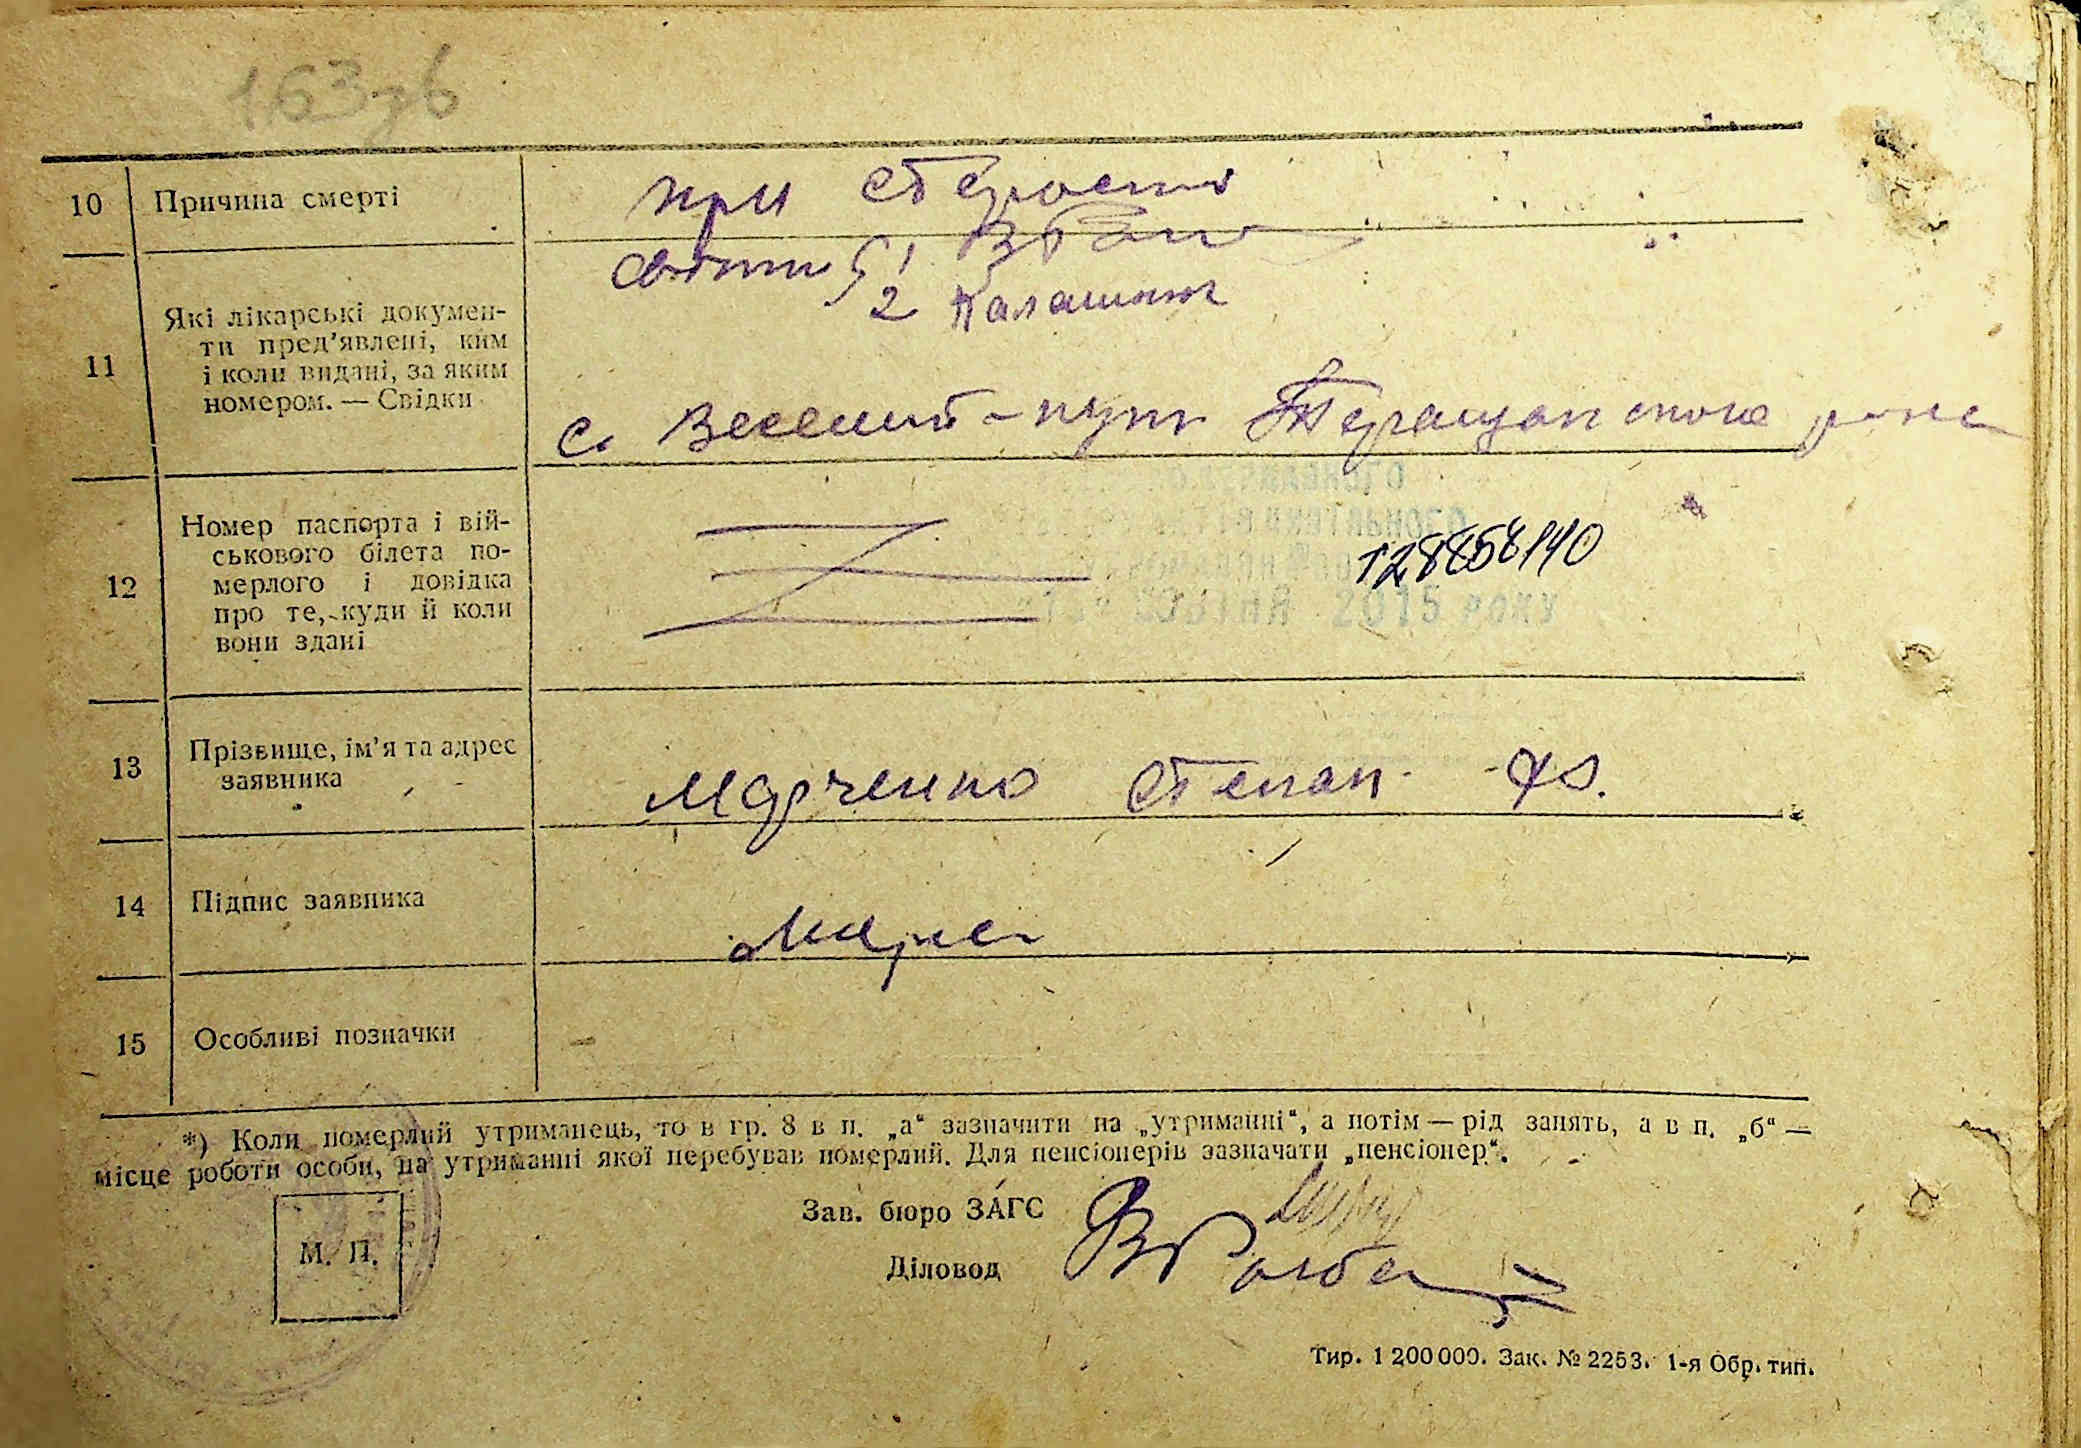 163зв
10 Причина смерті при старости
11 Які лікарські докумен-
ти пред’явлені, ким
і коли видані, за яким
номером. — Свідки
1
2 Калашник
с. Веселий-кут Таращанского р-на
12 Номер паспорта і вій-
ськового білета по-
мерлого і довідка
про те, куди й коли
вони здані
128858140
2015 року
13 Прізвище, ім’я та адрес
заявника
Марченко Степан
14 Підпис заявника
15 Особливі позначки
*) Коли померлий утриманець, то в гр. 8 в п. „а“ зазначити на „утриманні“, а потім — рід занять, а в п. „б“ —
місце роботи особи, на утриманні якої перебував померлий. Для пенсіонерів зазначати „пенсіонер“.
Зав. бюро ЗАГС
М. П.
Діловод
Тир. 1 200 000. Зак. № 2253. 1-я Обр. тип.